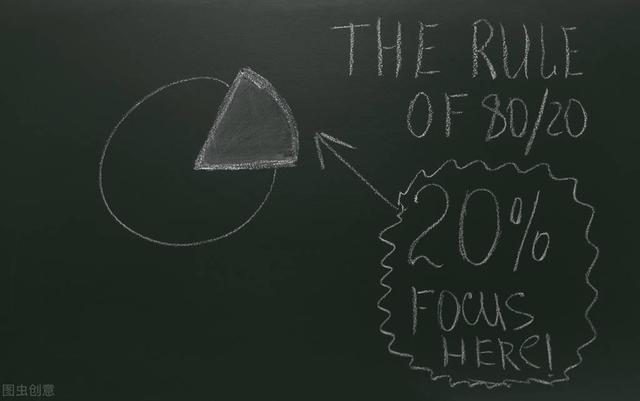 THE RULE
OF 80/20
20%
FOCUS
HERE!
图虫创意